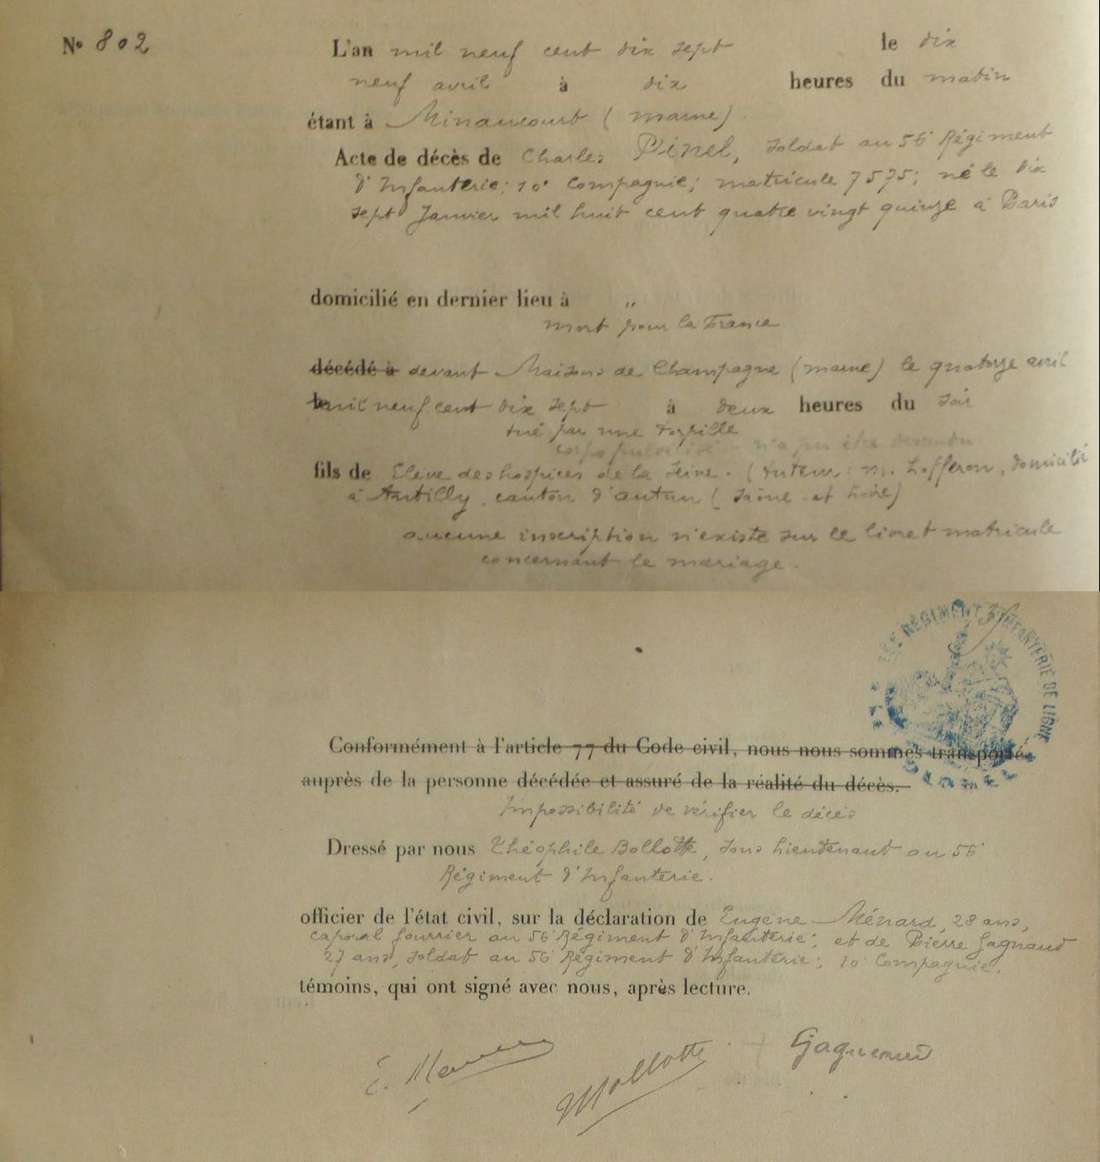 No 802
L'an mil neuf cent dix sept le dix
neuf avril à dix heures du matin
étant à Minaucourt (marne)
Acte de décès de Charles Pinel, soldat au 56e Régiment
d'Infanterie; 10e Compagnie; matricule 7575; né le dix
sept Janvier mil huit cent quatre vingt quinze à Paris
domicilié en dernier lieu à "
mort pour la France
décédé à devant Maisons de Champagne (marne) le quatorze avril
le mil neuf cent dix sept à deux heures du soir
tué par une torpille
corps pulvérisé n'a pu être
fils de Elève des hospices de la Seine. (tuteur: M. Lofferon, domicilié
à Antilly, canton d'autun (Saône et Loire)
aucune inscription n'existe sur le livret matricule
concernant le mariage.
56E RÉGIMENT D'INFANTERIE DE LIGNE
Conformément à l'article 77 du Code civil, nous nous sommes transporté
auprès de la personne décédée et assuré de la réalité du décès.
Impossibilité de vérifier le décès
Dressé par nous Théophile Bollotte, sous lieutenant au 56e
Régiment d'Infanterie.
officier de l'état civil, sur la déclaration de Eugène Ménard, 28 ans,
caporal fourrier au 56e Régiment d'Infanterie; et de Pierre Gagnaud
27 ans, soldat au 56e Régiment d'Infanterie; 10e Compagnie.
témoins, qui ont signé avec nous, après lecture.
E. Bollotte